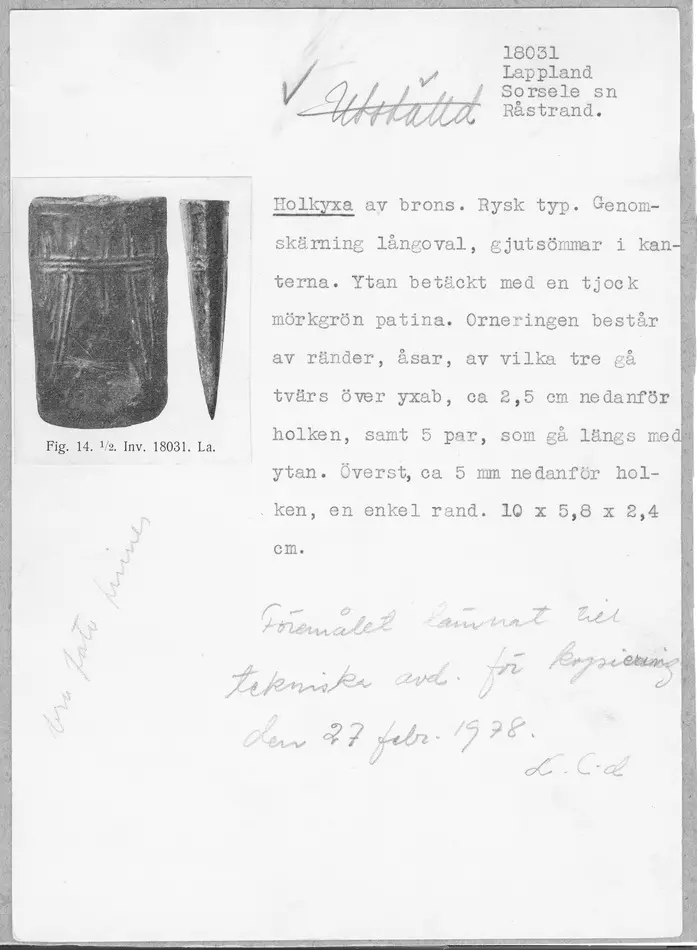 18031
Lappland
Sorsele sn
Råstrand.
✓ Utställd
Holkyxa av brons. Rysk typ. Genom-
skärning långoval, gjutsömmar i kan-
terna. Ytan betäckt med en tjock
mörkgrön patina. Orneringen består
av ränder, åsar, av vilka tre gå
tvärs över yxab, ca 2,5 cm nedanför
holken, samt 5 par, som gå längs med
ytan. Överst, ca 5 mm nedanför hol-
ken, en enkel rand. 10 x 5,8 x 2,4
cm.
Fig. 14. 1/2. Inv. 18031. La.
bra foto finnes
Föremålet lämnat till
tekniska avd. för kopiering
den 27 febr. 1978.